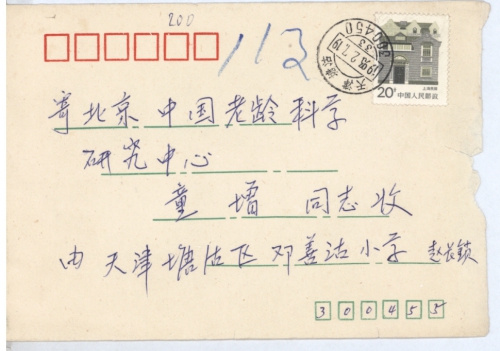 200
113
寄北京中国老龄科学
研究中心
童墙同志收
由天津塘沽区邓善沽小学 赵长锁
300455
300450
天津 塘沽
20分 中国人民邮政
上海民居